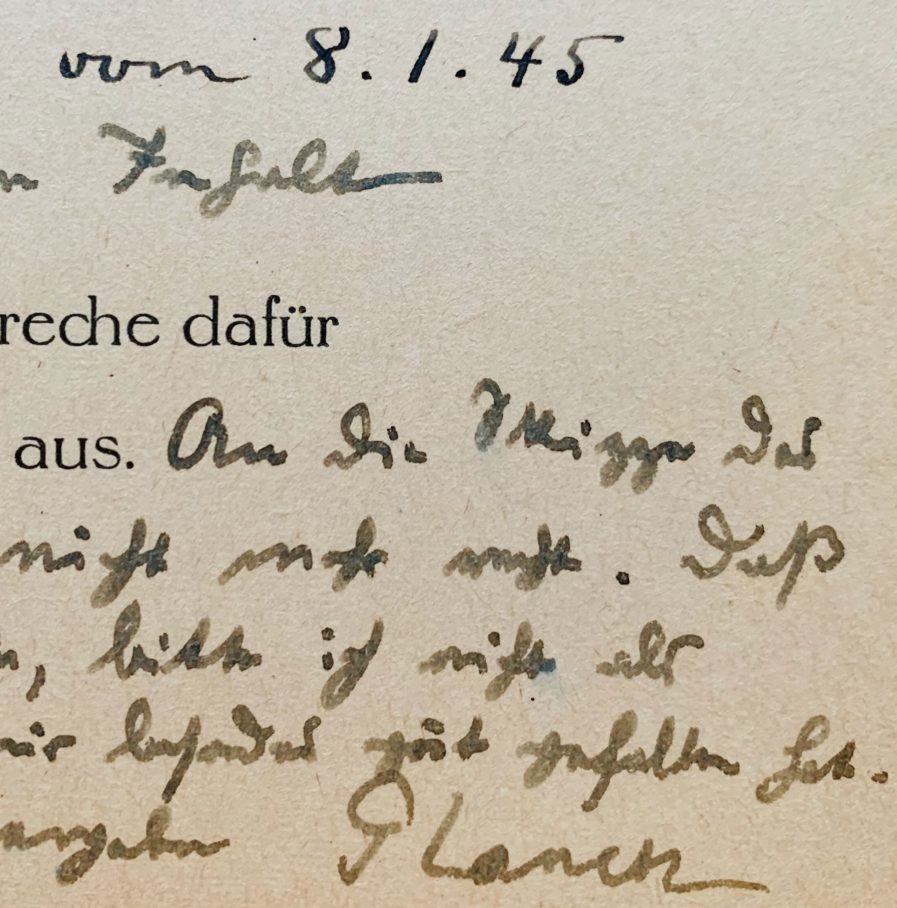 vom 8.1.45
n Inhalt
reche dafür
aus. An die Skizze des
nicht mehr recht. Daß
n, bitte ich nicht als
mir besonders gut gefallen hat.
ergeben Planck